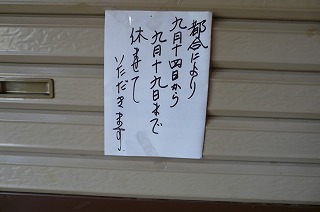 都合により
九月十四日から
九月十九日まで
休ませて
いただきます